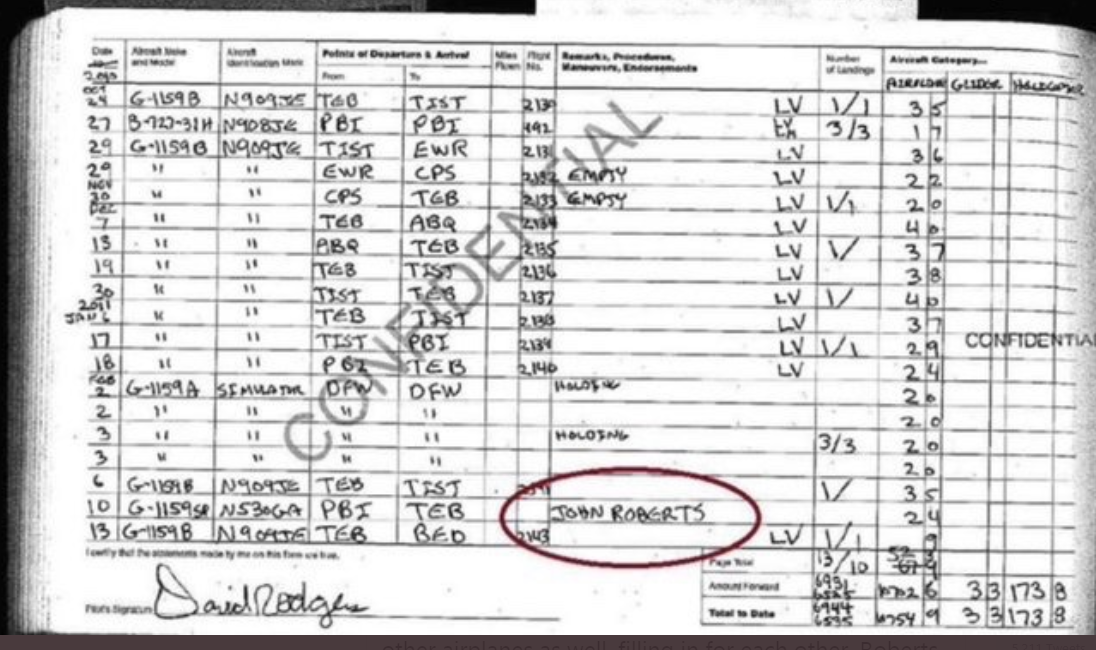 Date Aircraft Make and Model Aircraft Identification Mark Points of Departure & Arrival Miles Flown Flight No. Remarks, Procedures, Maneuvers, Endorsements Number of Landings Aircraft Category...
From To AIRPLANE GLIDER
OCT 24 G-1159B N909JE TEB TIST 2130 LV 1/1 3 5
27 B-727-31H N908JE PBI PBI 492 3/3 1 7
29 G-1159B N909JE TIST EWR 2131 LV 3 6
29 " " EWR CPS 2132 EMPTY LV 2 2
NOV 30 " " CPS TEB 2133 EMPTY LV 1/1 2 0
DEC 7 " " TEB ABQ 2134 LV 4 0
13 " " ABQ TEB 2135 LV 1/ 3 7
19 " " TEB TIST 2136 LV 3 8
30 " " TIST TEB 2137 LV 1/ 4 0
2011 JAN 6 " " TEB TIST 2138 LV 3 7
17 " " TIST PBI 2139 LV 1/1 2 9
18 " " PBI TEB 2140 LV 2 4
FEB 2 G-1159A SIMULATOR DFW DFW HOLDING 2 0
2 " " " " 2 0
3 " " " " HOLDING 3/3 2 0
3 " " " " 2 0
6 G-1159B N909JE TEB TIST 1/ 3 5
10 N530GA PBI TEB JOHN ROBERTS 2 4
13 G-1159B N909JE TEB BED 2143 LV 1/1 9
I certify that the statements made by me on this form are true.
Page Total 13/10
Amount Forward 6931 6 3 3 173 8
Pilot's Signature David Rodgers
Total to Date 6944 9 3 3 173 8
CONFIDENTIAL
CONFIDENTIAL
other airplanes as well, filling in for each other. Roberts